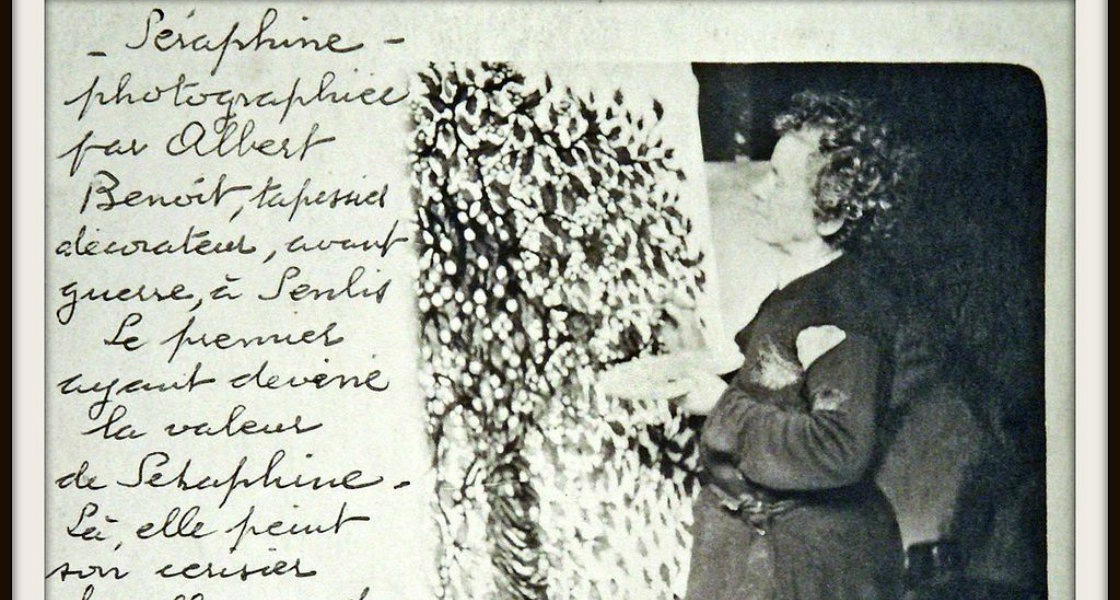 - Séraphine -
photographiée
par Albert
Benoît, tapissier
décorateur, avant
guerre, à Senlis
Le premier
ayant deviné
la valeur
de Séraphine.
Là, elle peint
son cerisier